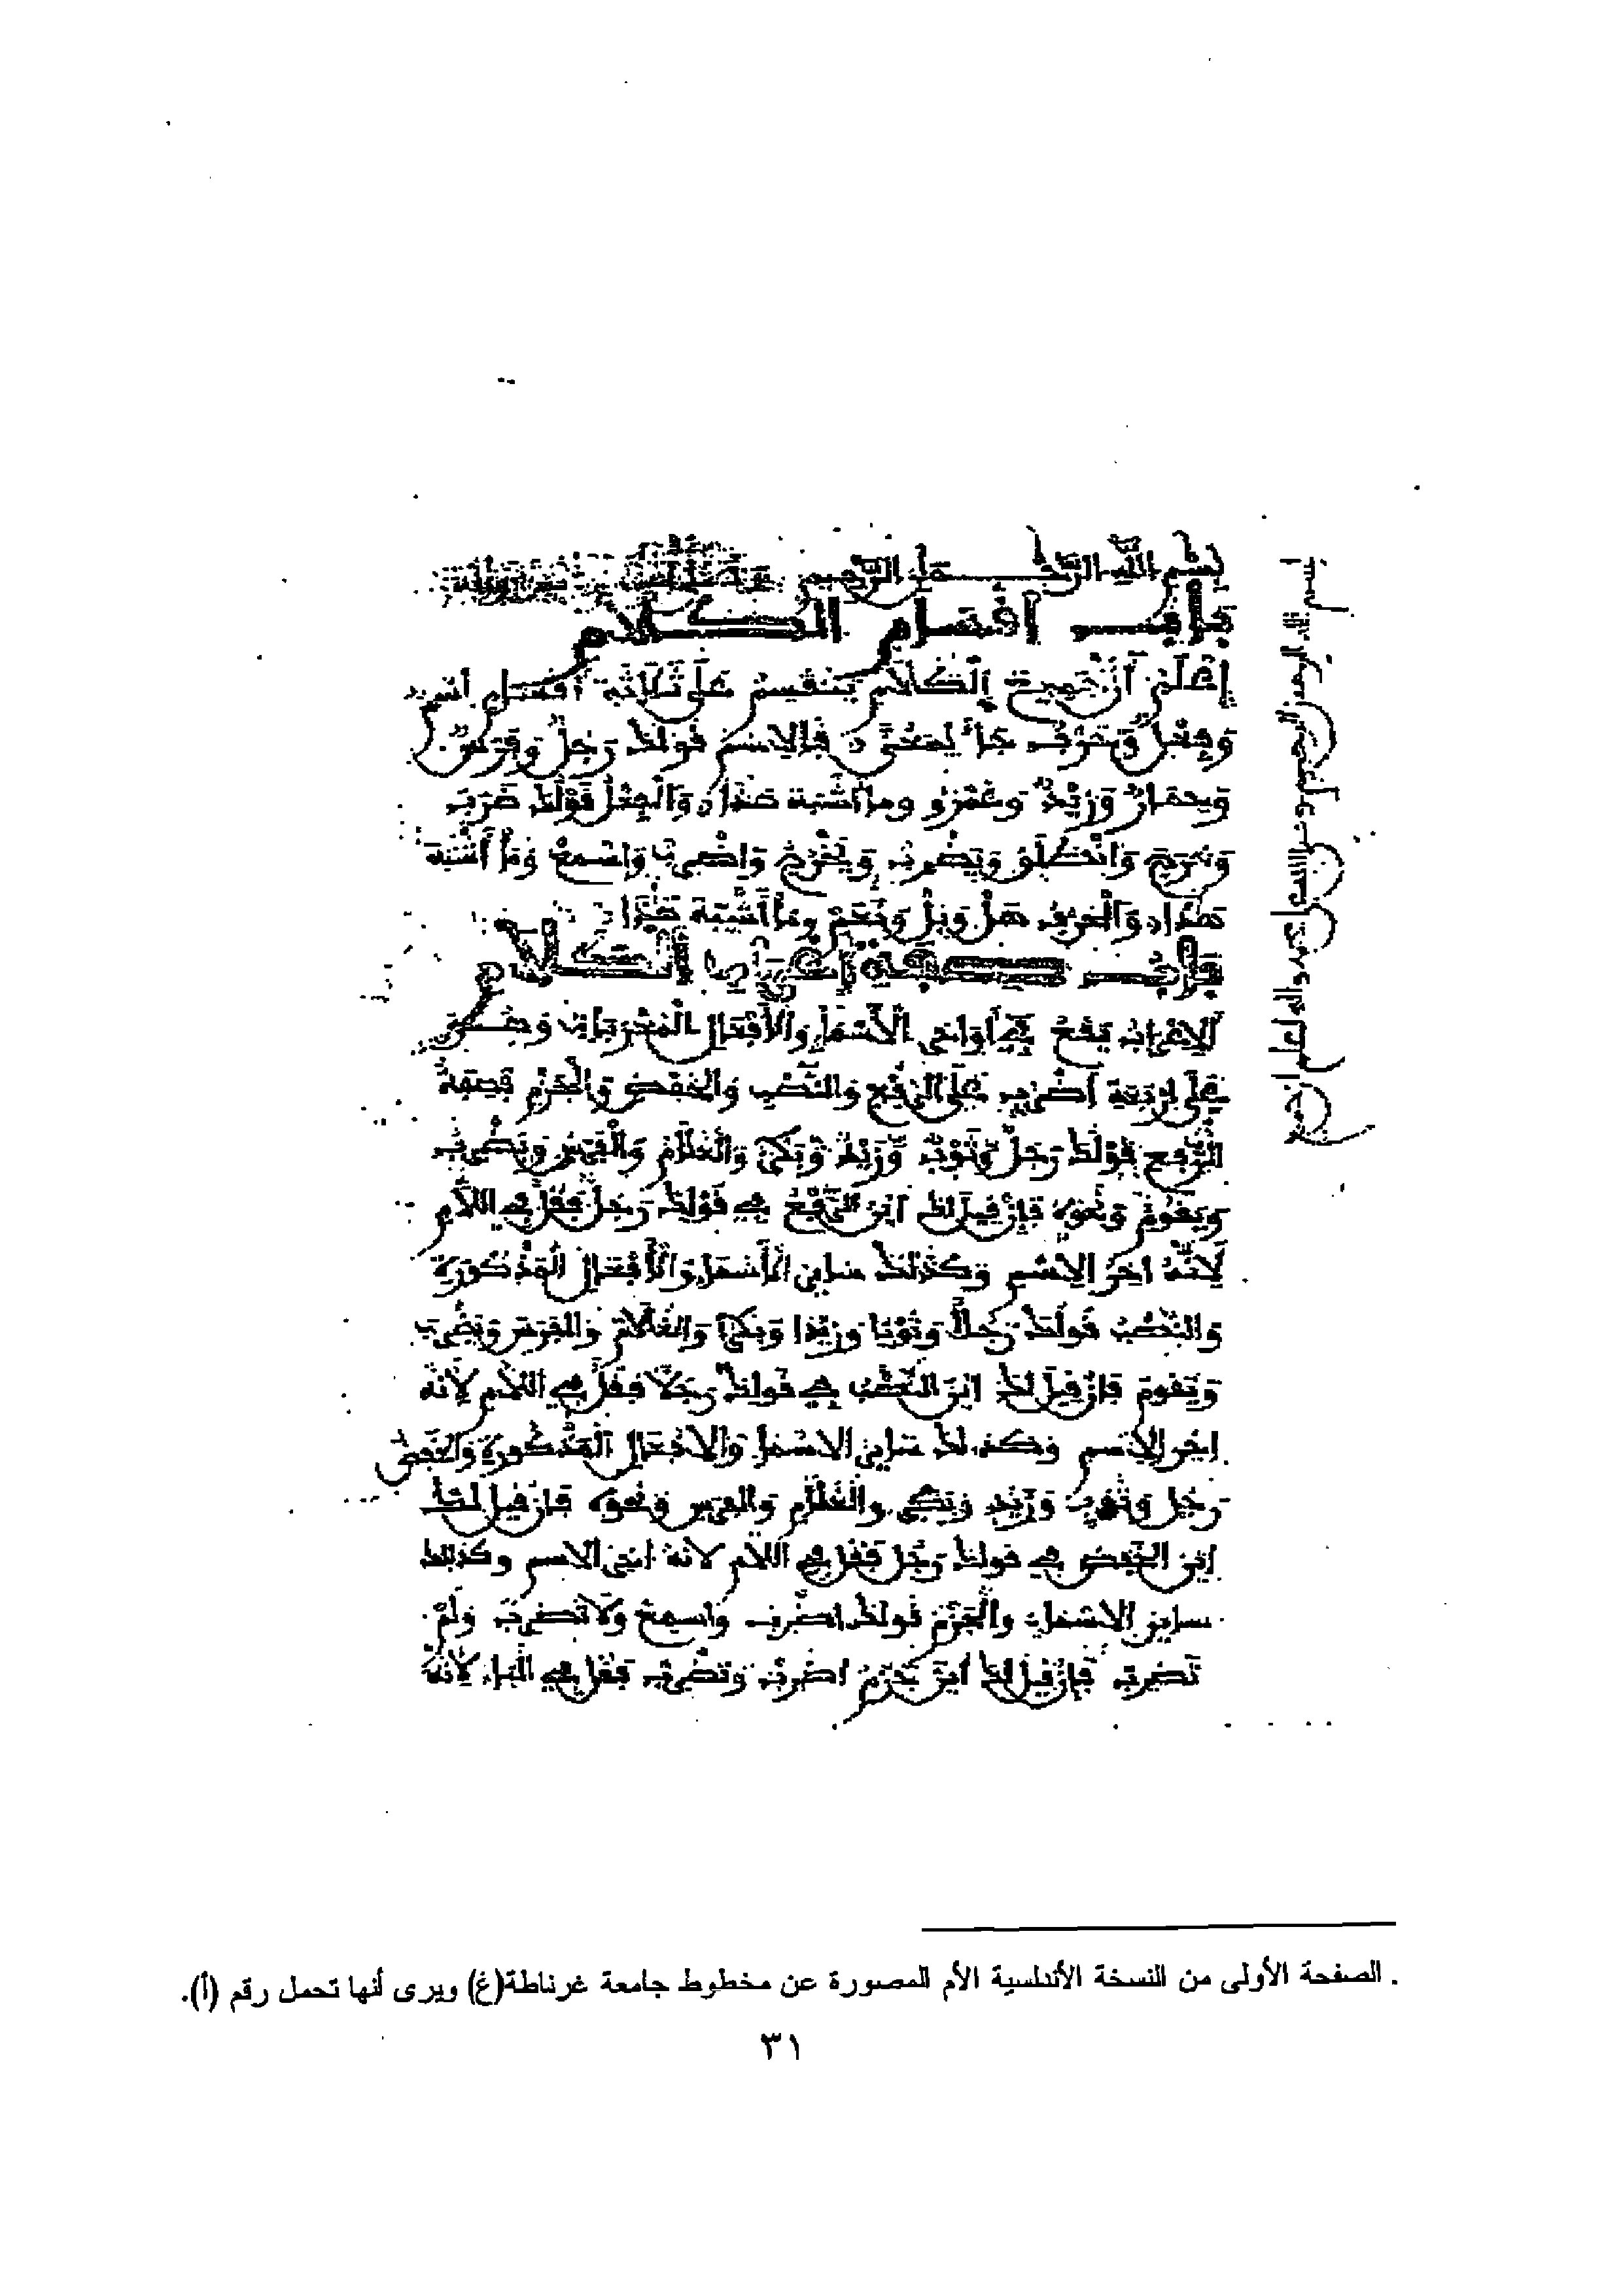 بسم الله الرحمن الرحيم
باب أقسام الكلام
إعلم أن جميع الكلام ينقسم على ثلاثة أقسام اسم
وفعل وحرف جاء لمعنى فالاسم قولك رجل وفرس
وحمار وزيد وعمرو وما أشبه هذا والفعل قولك ضرب
وخرج وانطلق ويضرب ويخرج واضرب واسمع وما أشبه
هذا والحرف هل وبل ونعم وما أشبه هذا
باب الكلام
الإعراب يقع في أواخر الأسماء والأفعال المعربات
على أربعة أضرب على الرفع والنصب والخفض والجزم فصفة
الرفع قولك رجل وثوب وزيد وبكر والغلام والفرس ويضرب
ويقوم ونحوه فإن قيل لك أين الرفع في قولك رجل فقل في اللام
لأنه اخر الاسم وكذلك ساير الأسماء والأفعال المذكورة
والنصب قولك رجلا وثوبا وزيدا وبكرا والغلام والفرس ويضرب
ويقوم فإن قيل لك اين النصب في قولك رجلا فقل في اللام لأنه
اخر الاسم وكذلك ساير الاسماء والافعال المذكورة والخفض
رجل وثوب وزيد وبكر والغلام والفرس ونحوه فإن قيل لك
اين الخفض في قولك رجل فقل في اللام لأنه اخر الاسم وكذلك
ساير الاسماء والجزم قولك اضرب واسمع ولا تضرب ولم
تضرب فإن قيل لك أين جزم اضرب وتضرب فقل في الباء لأنه
بسم الله الرحمن الرحيم
. الصفحة الأولى من النسخة الأندلسية الأم المصورة عن مخطوط جامعة غرناطة(غ) ويرى أنها تحمل رقم (أ).
٣١